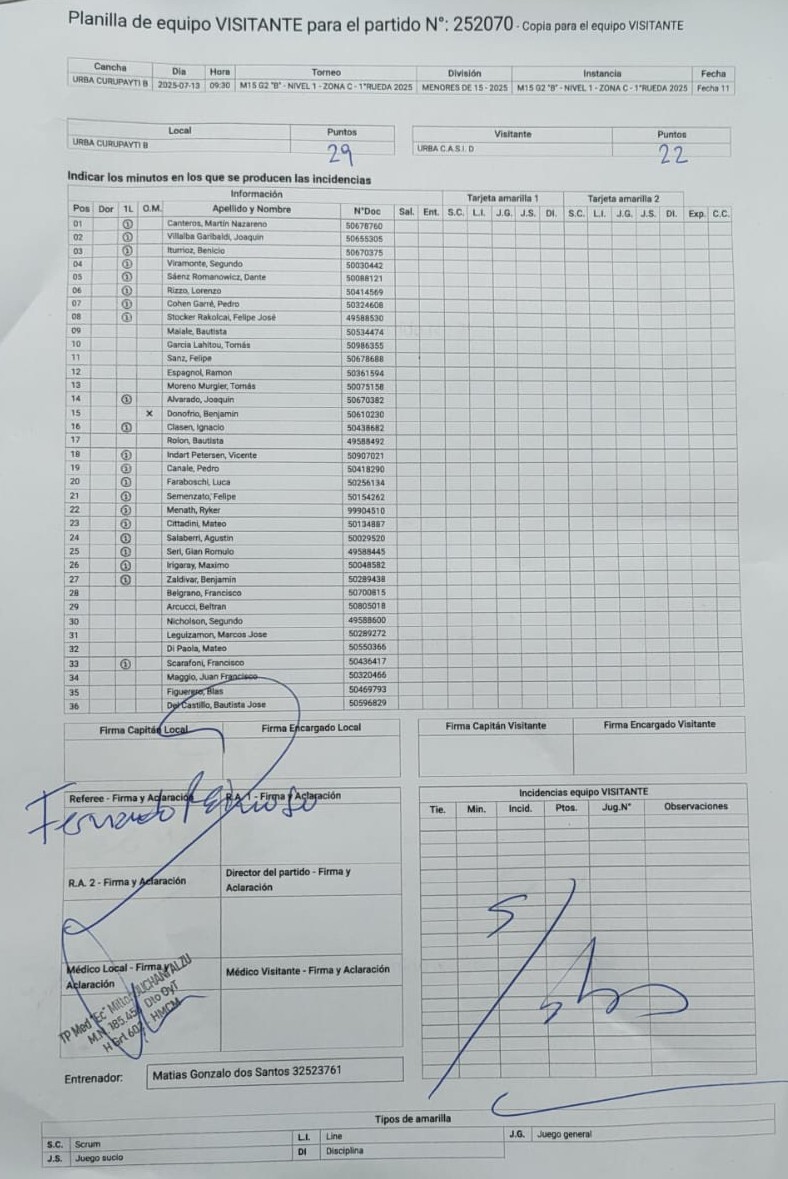 Planilla de equipo VISITANTE para el partido N°: 252070 - Copia para el equipo VISITANTE
Cancha Dia Hora Torneo División Instancia Fecha
URBA CURUPAYTI B 2025-07-13 09:30 M15 G2 "B" - NIVEL 1 - ZONA C - 1°RUEDA 2025 MENORES DE 15 - 2025 M15 G2 "B" - NIVEL 1 - ZONA C - 1°RUEDA 2025 Fecha 11
Local Puntos Visitante Puntos
URBA CURUPAYTI B 29 URBA C.A.S.I. D 22
Indicar los minutos en los que se producen las incidencias
Información Tarjeta amarilla 1 Tarjeta amarilla 2
Pos Dor 1L O.M. Apellido y Nombre N°Doc Sal. Ent. S.C. L.I. J.G. J.S. DI. S.C. L.I. J.G. J.S. DI. Exp. C.C.
01 ① Canteros, Martín Nazareno 50678760
02 ① Villalba Garibaldi, Joaquin 50655305
03 ① Iturrioz, Benicio 50670375
04 ① Viramonte, Segundo 50030442
05 ① Sáenz Romanowicz, Dante 50088121
06 ① Rizzo, Lorenzo 50414569
07 ① Cohen Garré, Pedro 50324608
08 ① Stocker Rakolcai, Felipe José 49588530
09 Maiale, Bautista 50534474
10 Garcia Lahitou, Tomás 50986355
11 Sanz, Felipe 50678688
12 Espagnol, Ramon 50361594
13 Moreno Murgier, Tomás 50075158
14 ① Alvarado, Joaquin 50670382
15 x Donofrio, Benjamin 50610230
16 ① Clasen, Ignacio 50438682
17 Rolon, Bautista 49588492
18 ① Indart Petersen, Vicente 50907021
19 ① Canale, Pedro 50418290
20 ① Faraboschi, Luca 50256134
21 ① Semenzato, Felipe 50154262
22 ① Menath, Ryker 99904510
23 ① Cittadini, Mateo 50134887
24 ① Salaberri, Agustin 50029520
25 ① Seri, Gian Romulo 49588445
26 ① Irigaray, Maximo 50048582
27 ① Zaldivar, Benjamin 50289438
28 Belgrano, Francisco 50700815
29 Arcucci, Beltran 50805018
30 Nicholson, Segundo 49588600
31 Leguizamon, Marcos Jose 50289272
32 Di Paola, Mateo 50550366
33 ① Scarafoni, Francisco 50436417
34 Maggio, Juan Francisco 50320466
35 Figueredo, Blas 50469793
36 Del Castillo, Bautista Jose 50596829
Firma Capitán Local Firma Encargado Local Firma Capitán Visitante Firma Encargado Visitante
Referee - Firma y Aclaración R.A. 1 - Firma y Aclaración
Incidencias equipo VISITANTE
Tie. Min. Incid. Ptos. Jug.N° Observaciones
Fernando
R.A. 2 - Firma y Aclaración Director del partido - Firma y
Aclaración
S/
Médico Local - Firma y Médico Visitante - Firma y Aclaración
Aclaración
TP Med "Ec"
M.N. 185.45 Dto OyT
H Grl 60 HMCM
Entrenador: Matias Gonzalo dos Santos 32523761
Tipos de amarilla
S.C. Scrum L.I. Line J.G. Juego general
J.S. Juego sucio DI Disciplina